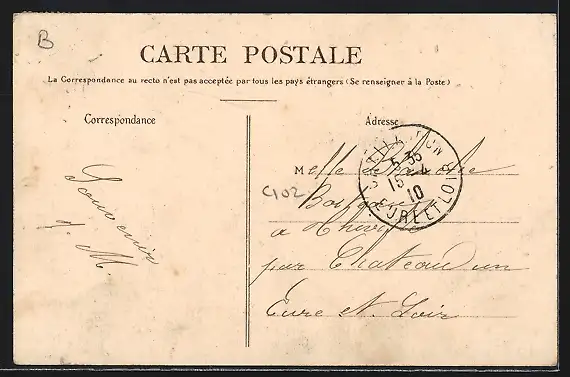 B
CARTE POSTALE
La Correspondance au recto n'est pas acceptée par tous les pays étrangers (Se renseigner à la Poste)
Correspondance
Adresse
Souvenir
M.
Melle
5-35
15-4
10
EURE ET LOIR
C102
a
par Chateaudun
Eure et Loir